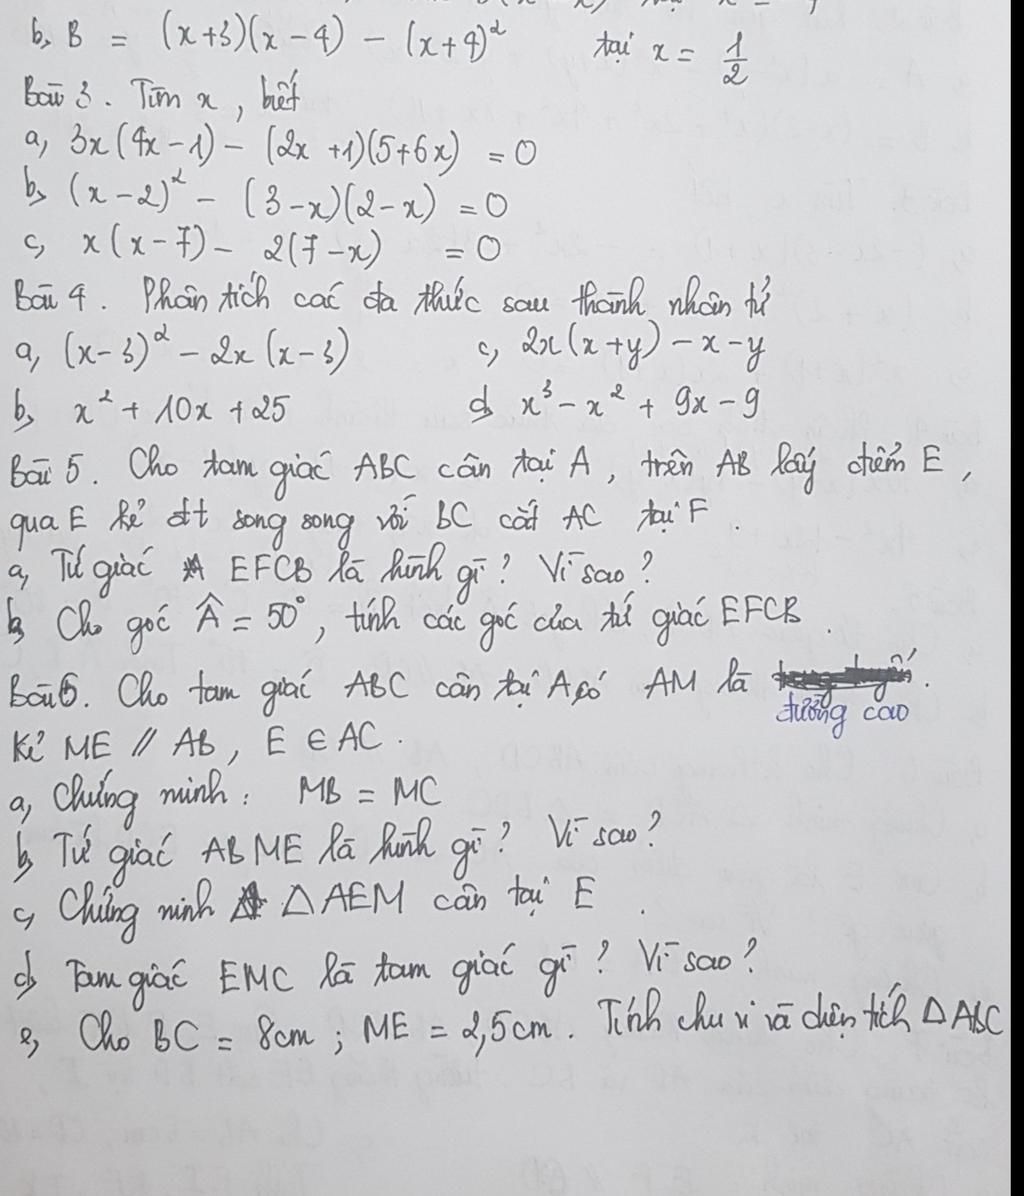 b, B = (x+3)(x-4) - (x+4)² tại x = 1/2
Bài 3. Tìm x, biết
a, 3x(4x-1) - (2x+1)(5+6x) = 0
b, (x-2)² - (3-x)(2-x) = 0
c, x(x-7) - 2(7-x) = 0
Bài 4. Phân tích các đa thức sau thành nhân tử
a, (x-3)² - 2x(x-3) c, 2x(x+y) - x - y
b, x² + 10x + 25 d, x³ - x² + 9x - 9
Bài 5. Cho tam giác ABC cân tại A, trên AB lấy điểm E,
qua E kẻ đt song song với BC cắt AC tại F.
a, Tứ giác EFCB là hình gì? Vì sao?
b, Cho góc Â = 50°, tính các góc của tứ giác EFCB.
Bài 6. Cho tam giác ABC cân tại A có AM là đường cao.
Kẻ ME // AB, E ∈ AC.
a, Chứng minh: MB = MC
b, Tứ giác ABME là hình gì? Vì sao?
c, Chứng minh △AEM cân tại E.
d, Tam giác EMC là tam giác gì? Vì sao?
e, Cho BC = 8cm; ME = 2,5cm. Tính chu vi và diện tích △ABC